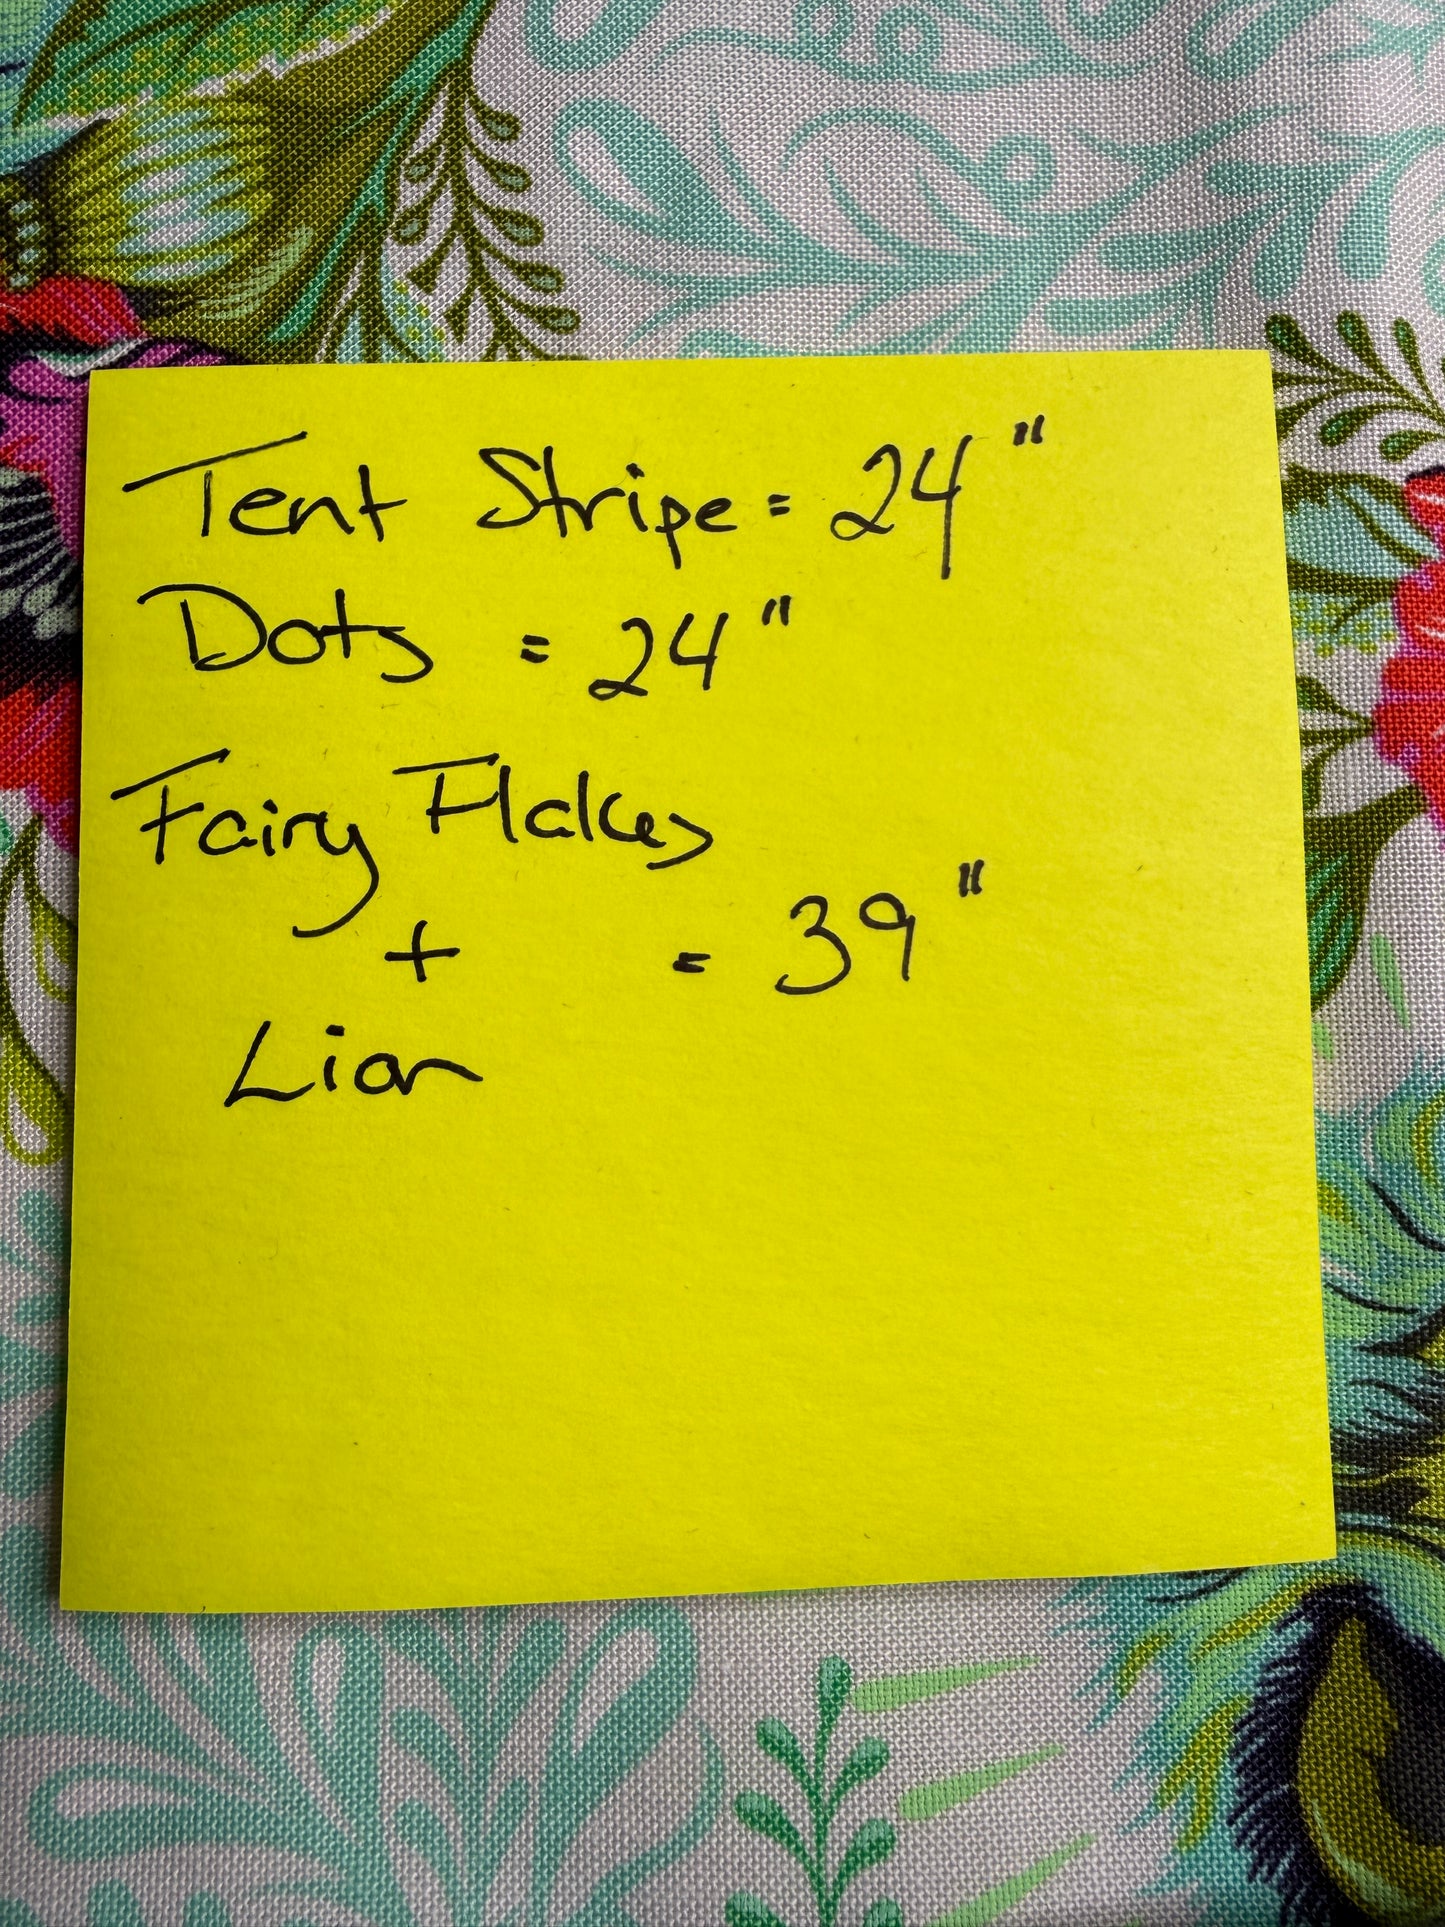 Tent Stripe = 24"
Dots = 24"
Fairy Flakes
+ = 39"
Lion